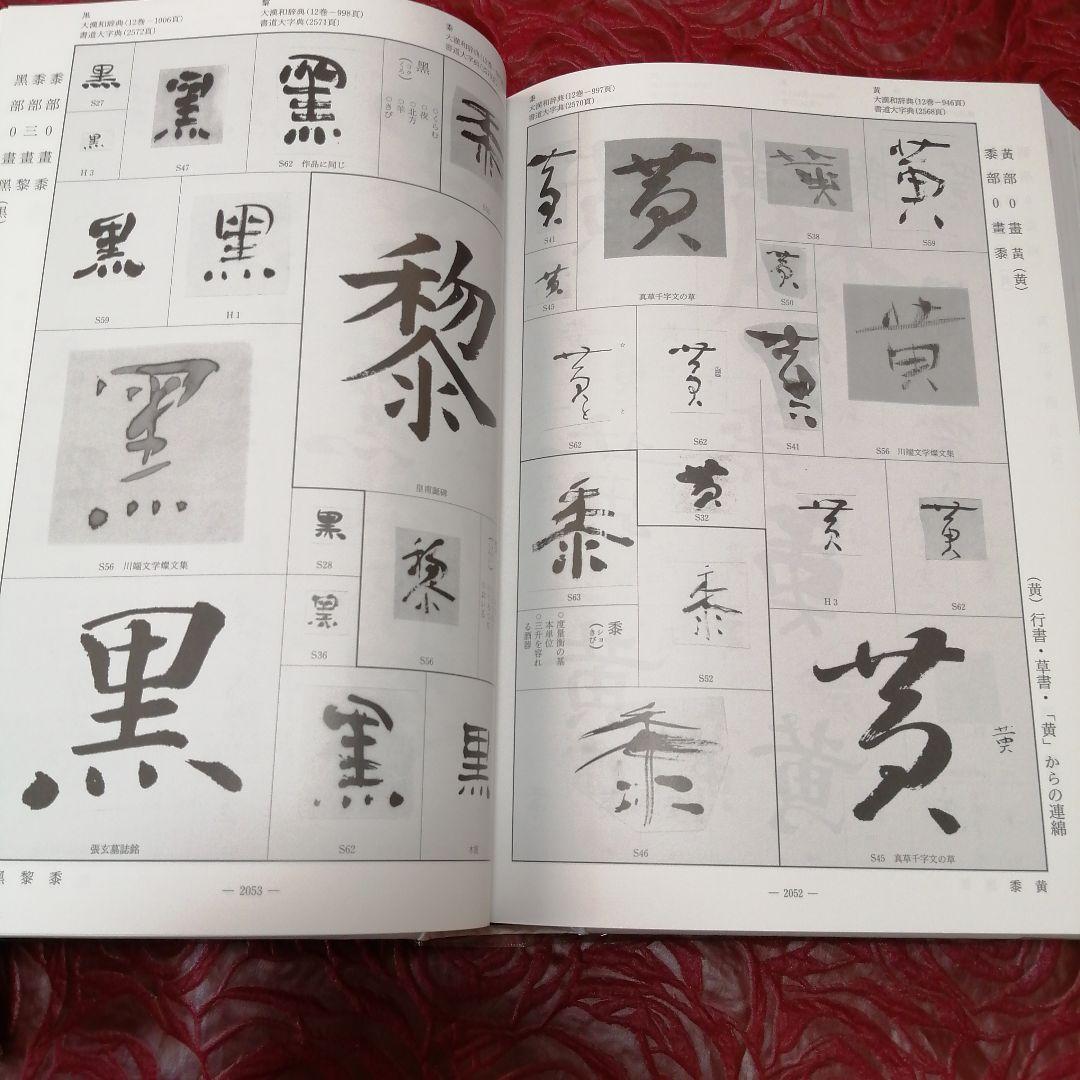 黄
大漢和辞典(12巻－946頁)
書道大字典(2568頁)
黍
大漢和辞典(12巻－997頁)
書道大字典(2570頁)
黃部0畫 黃(黄)
黍部0畫 黍
(黄) 行書・草書・「黄」からの連綿
黄
S59
黄
S38
黄
真草千字文の草
黄
S41
黄
S50
黄
S45
黄
S56 川端文学燦文集
黄
S41
黄
S62
黄と
S62
黄
S62
黄
H 3
黄
S32
黍
S63
黄
S45 真草千字文の草
黍
S52
黍
(ショ
きび)
○度量衡の基
本単位
○三升を容れ
る酒器
黍
S46
黍 黄
— 2052 —
黍
大漢和辞典(12巻
書道大字典
黎
大漢和辞典(12巻－998頁)
書道大字典(2571頁)
黒
大漢和辞典(12巻－1006頁)
書道大字典(2572頁)
黍部0畫 黍
黍部三畫 黎
黑部0畫 黑
黍
黑
(コク
くろ)
○くらむ
○夜
○北方
○羊
○きび
黒
S62 作品に同じ
黒
S47
黒
S27
黒
H 3
黎
皇甫誕碑
黒
H 1
黒
S59
黒
S56 川端文学燦文集
黎
S56
黒
S28
黒
S36
黒
木簡
黒
S62
黒
張玄墓誌銘
黑 黎 黍
— 2053 —